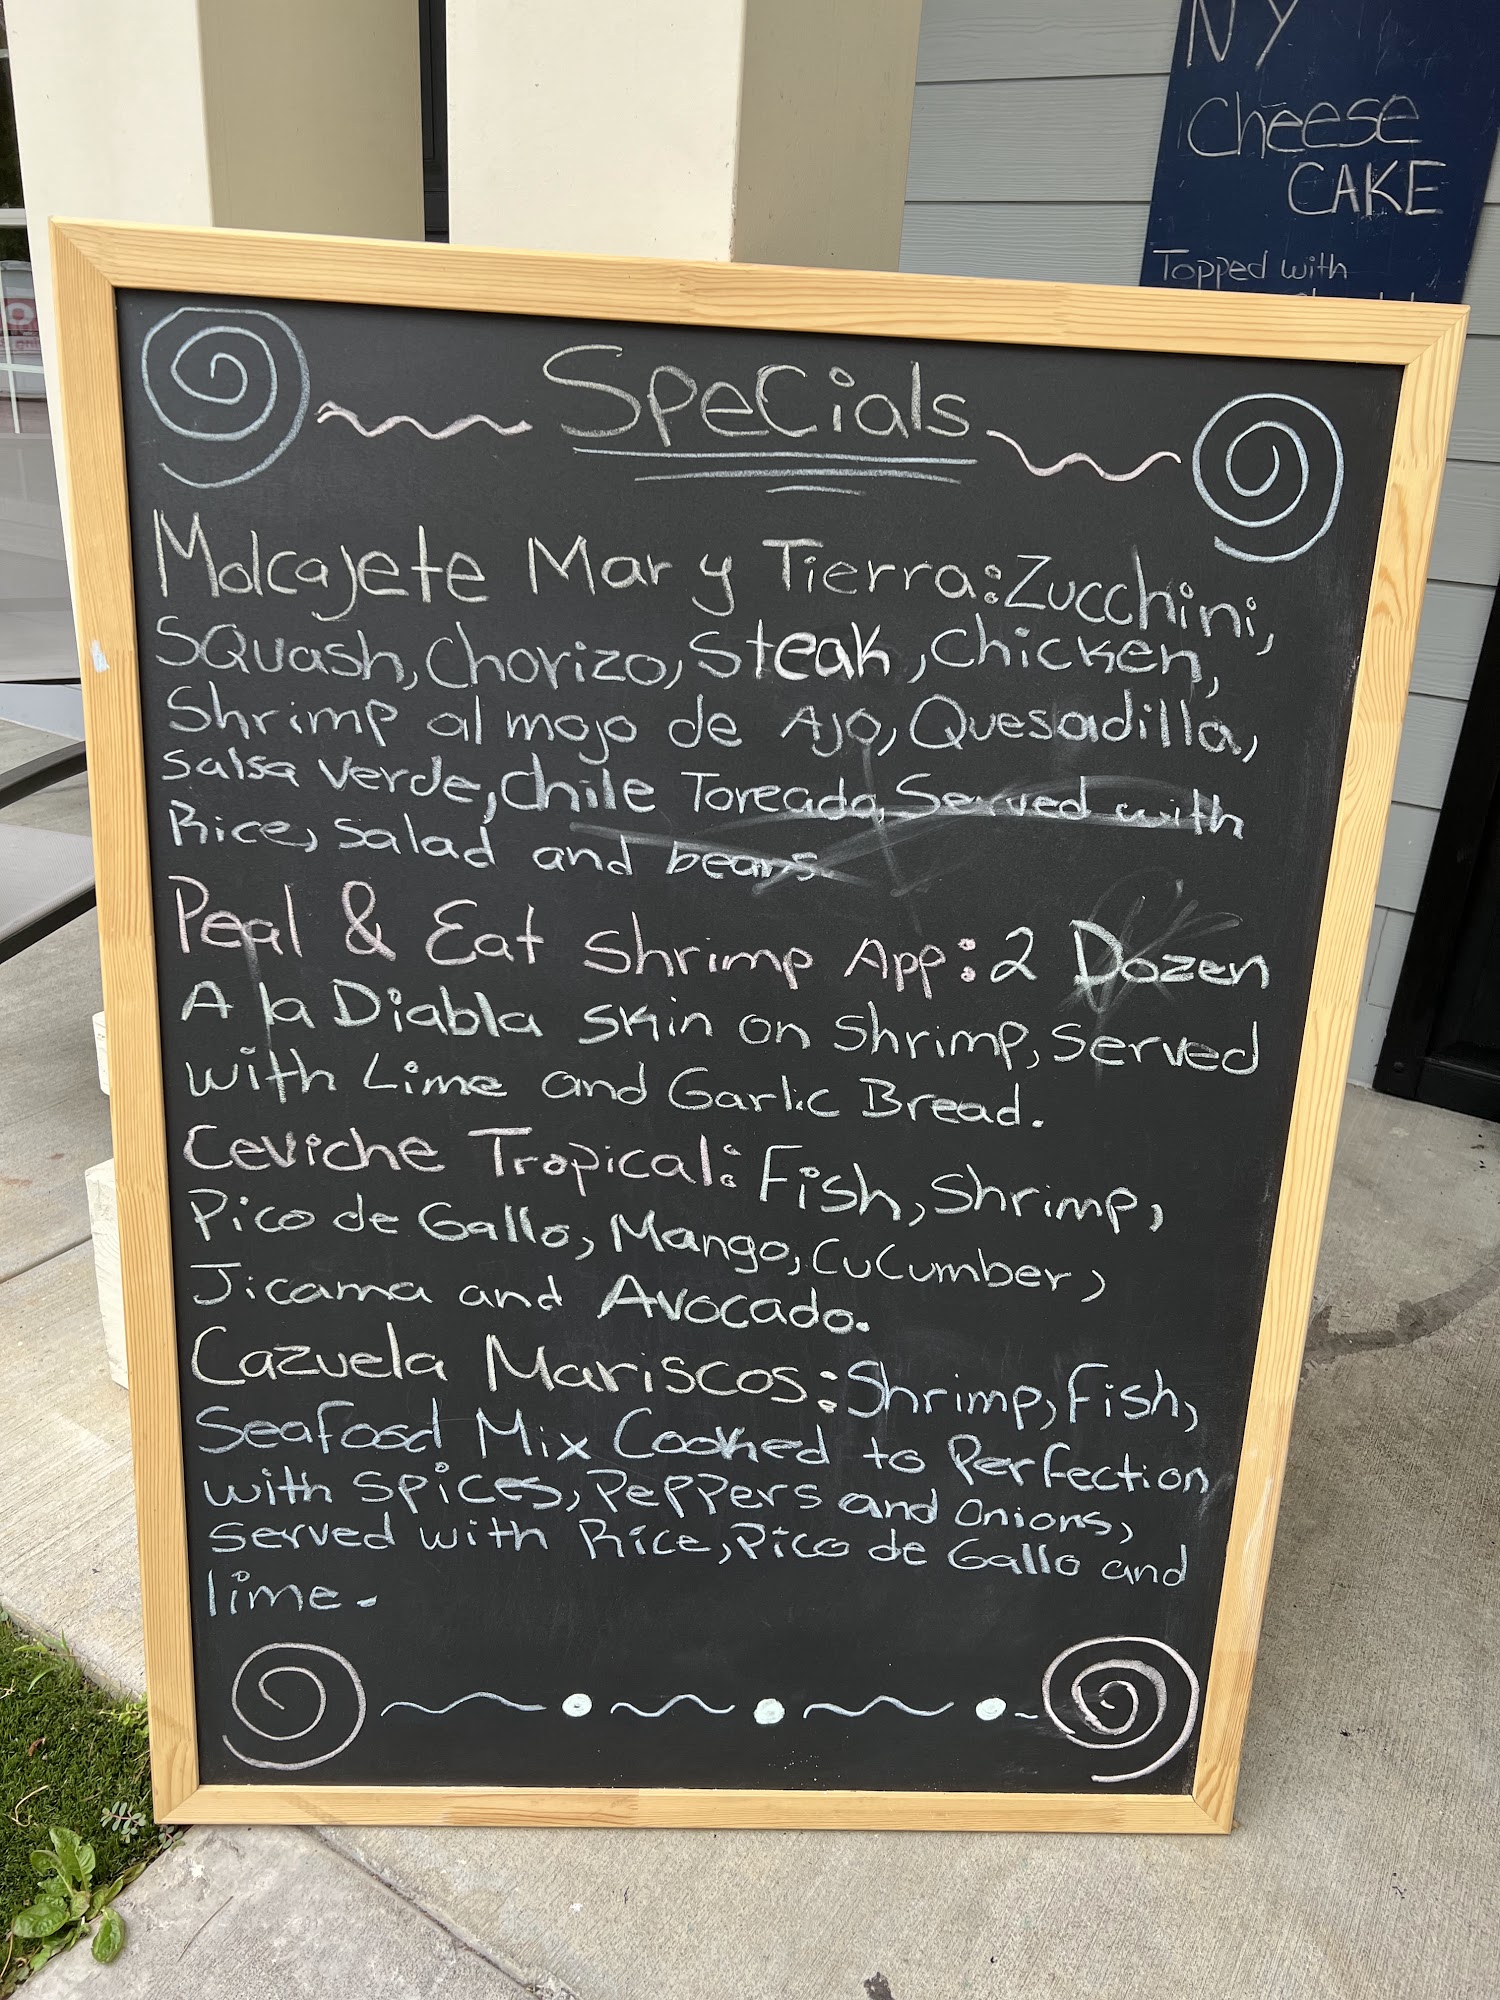 NY
Cheese
CAKE
Topped with
Specials
Molcajete Mar y Tierra: Zucchini,
Squash, Chorizo, Steak, Chicken,
Shrimp al mojo de Ajo, Quesadilla,
Salsa Verde, Chile Toreado, Served with
Rice, Salad and beans
Peal & Eat Shrimp App: 2 Dozen
A la Diabla skin on Shrimp, Served
with Lime and Garlic Bread.
Ceviche Tropical: Fish, Shrimp,
Pico de Gallo, Mango, Cucumber,
Jicama and Avocado.
Cazuela Mariscos: Shrimp, Fish,
Seafood Mix Cooked to Perfection
with Spices, Peppers and Onions,
Served with Rice, Pico de Gallo and
lime.